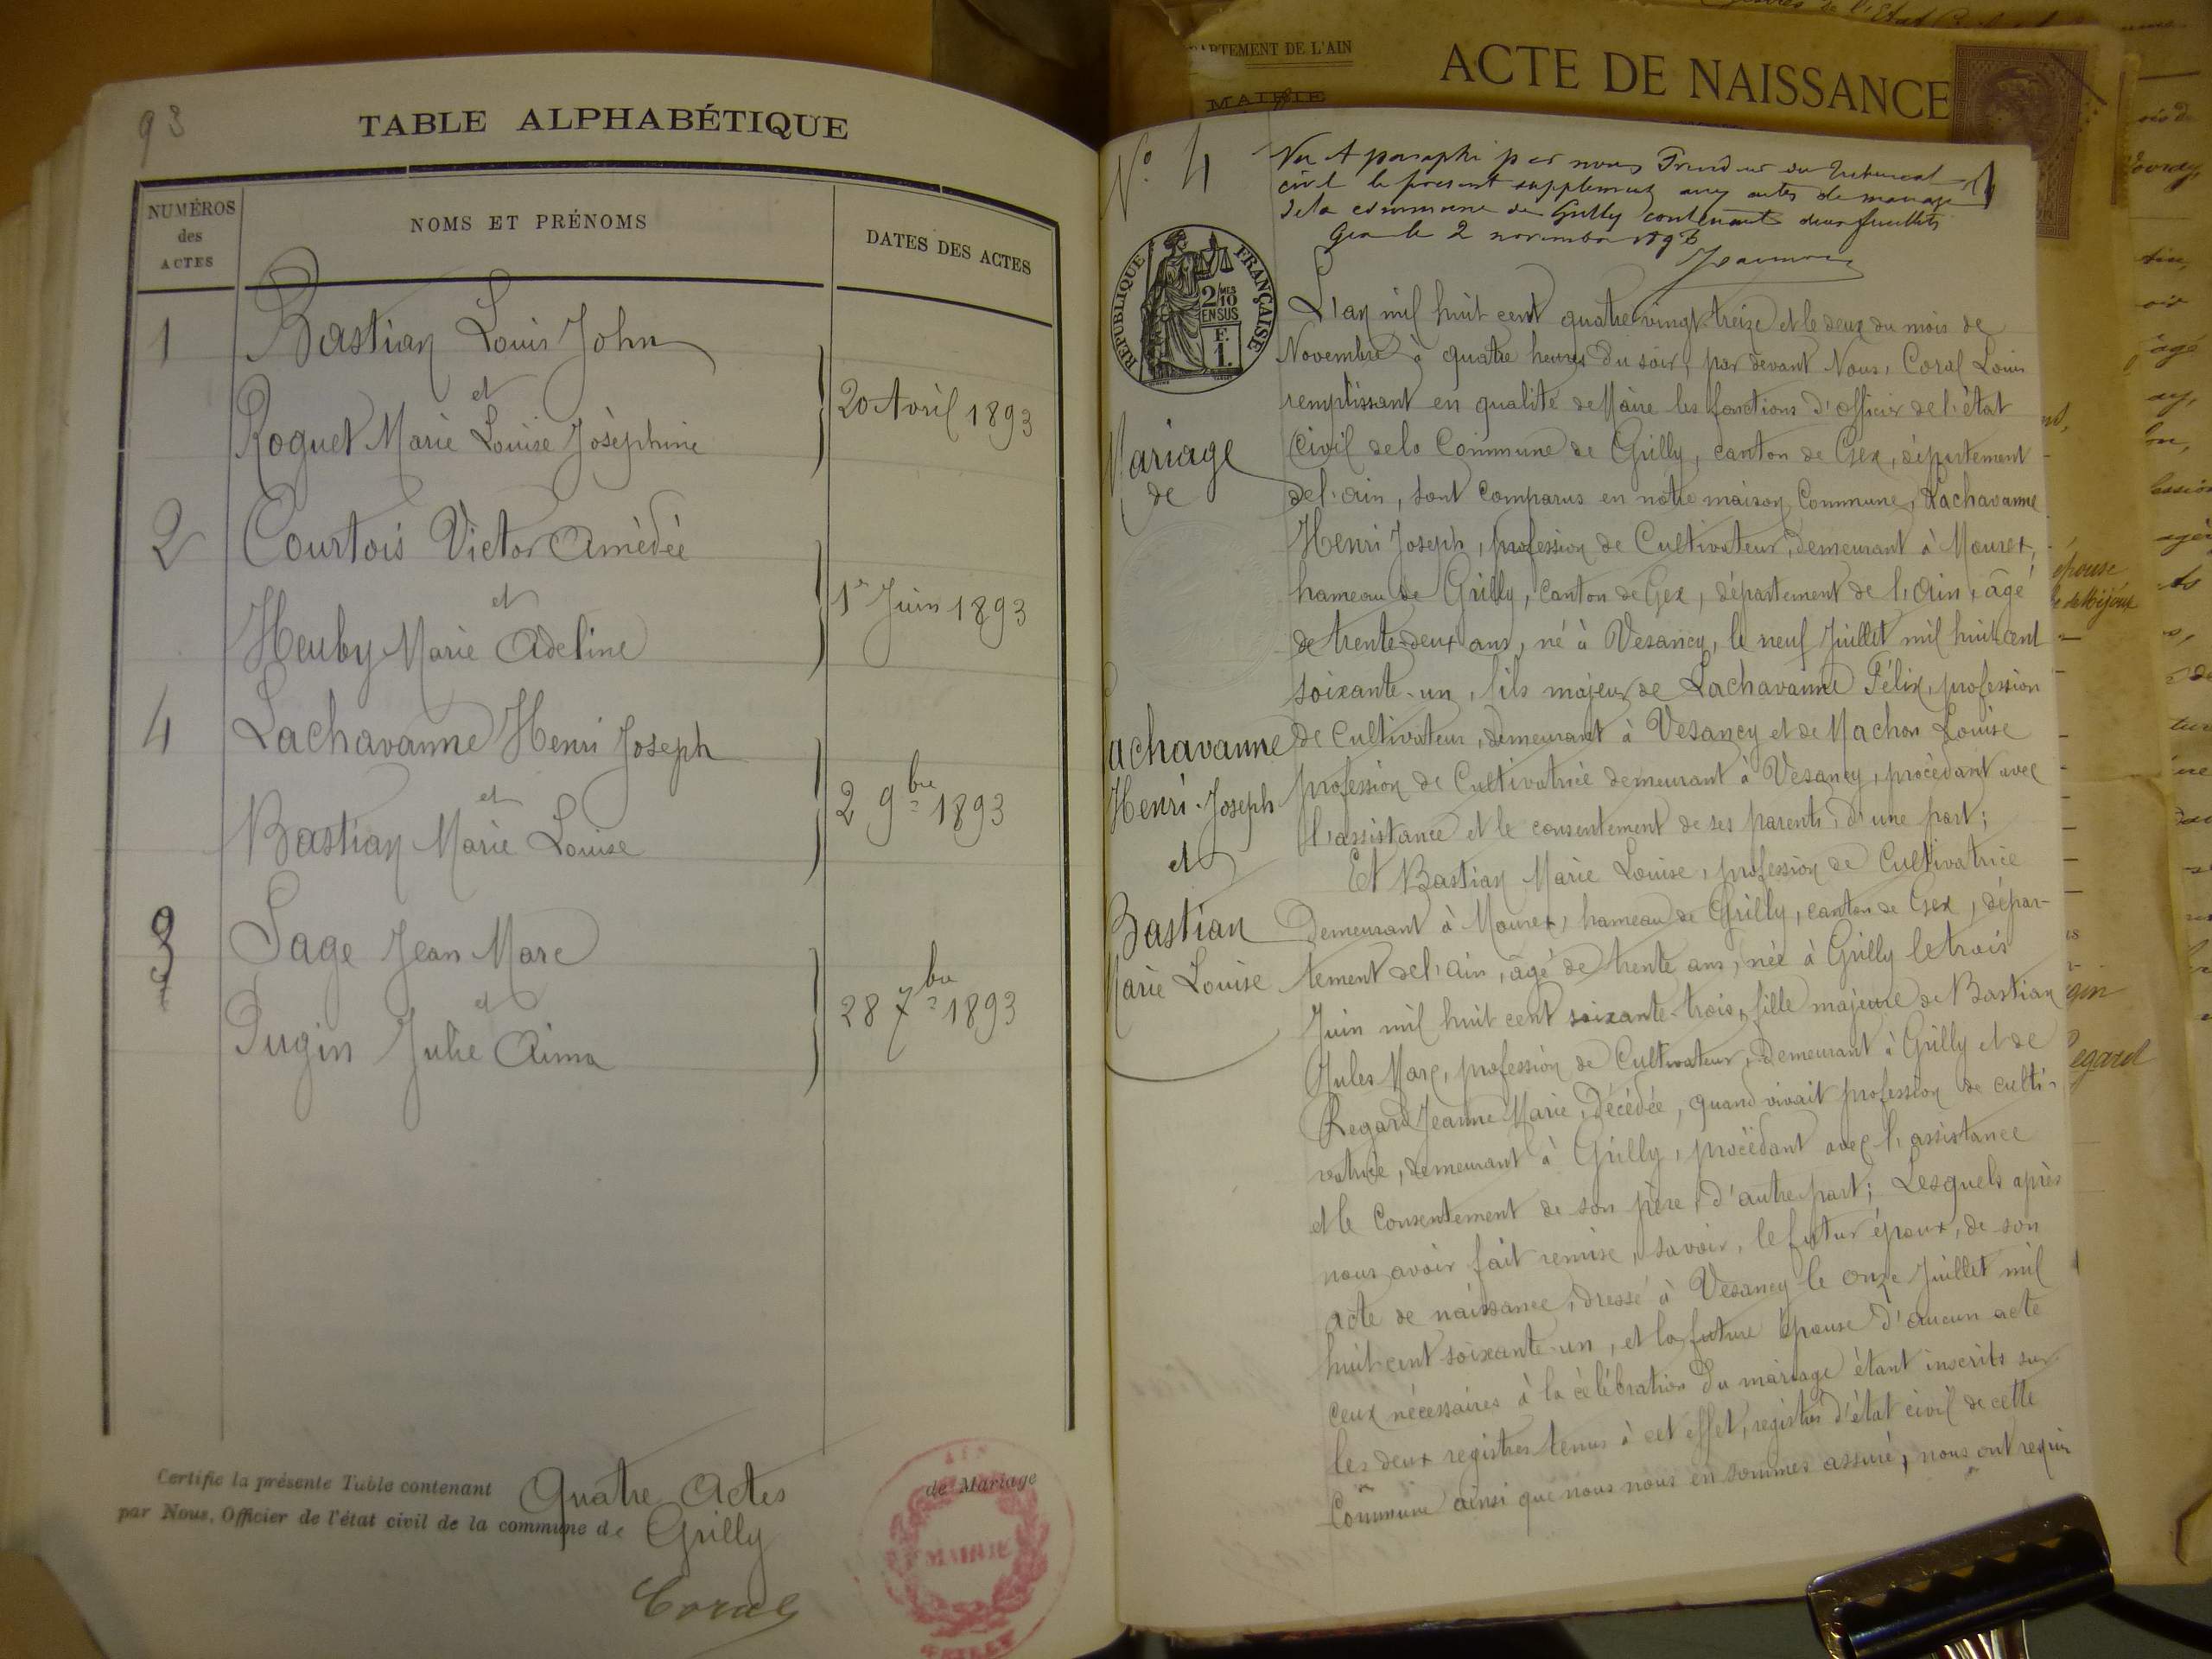 93
TABLE ALPHABÉTIQUE
NUMÉROS des ACTES
NOMS ET PRÉNOMS
DATES DES ACTES
1 Bastian Louis John
et
Roguet Marie Louise Josèphine
20 Avril 1893
2 Courtois Victor Amèdèe
et
Heuby Marie Adeline
1er Juin 1893
4 Lachavanne Henri Joseph
et
Bastian Marie Louise
2 9bre 1893
3 Sage Jean Marc
et
Pugin Julie Aima
28 7bre 1893
Certifie la présente Table contenant Quatre Actes de Mariage
par Nous, Officier de l'état civil de la commune de Grilly
Coral
AIN
MAIRIE
GRILLY
PARTEMENT DE L'AIN
MAIRIE
ACTE DE NAISSANCE
No. 4
Vu et paraphé par nous Président du Tribunal
civil le present supplement aux actes de mariage
de la commune de Grilly contenant deux feuillets
Gex le 2 novembre 1893
RÉPUBLIQUE FRANÇAISE
2/10MES
EN SUS
F.
1.
Mariage
de
Lachavanne
Henri-Joseph
et
Bastian
Marie Louise
L'an mil huit cent quatre-vingt-treize et le deux du mois de
Novembre à quatre heures du soir, par devant Nous, Coral Louis
remplissant en qualité de Maire les fonctions d'officier de l'état
Civil de la Commune de Grilly, canton de Gex, département
de l'ain, sont comparus en notre maison Commune, Lachavanne
Henri Joseph, profession de Cultivateur, demeurant à Mourex,
hameau de Grilly, canton de Gex, département de l'Ain, âgé
de trente-deux ans, né à Vesancy, le neuf Juillet mil huit cent
soixante-un, fils majeur de Lachavanne Félix, profession
de Cultivateur, demeurant à Vesancy et de Machon Louise
profession de Cultivatrice demeurant à Vesancy, procèdant avec
l'assistance et le consentement de ses parents, d'une part;
Et Bastian Marie Louise, profession de Cultivatrice
Demeurant à Mourex, hameau de Grilly, canton de Gex, dépar-
tement de l'ain, âgé de trente ans, née à Grilly le trois
Juin mil huit cent soixante-trois, fille majeure de Bastian
Jules Marc, profession de Cultivateur, Demeurant à Grilly et de
Regard Jeanne Marie, Décédée, quand vivait profession de culti-
vatrice, demeurant à Grilly, procèdant avec l'assistance
et le Consentement de son père, d'autre part; Lesquels après
nous avoir fait remise, savoir, le futur époux, de son
acte de naissance, dressé à Vesancy le onze Juillet mil
huit cent soixante-un, et la future épouse d'aucun acte
Ceux nécessaires à la célébration du mariage étant inscrits sur
les deux registres tenus à cet effet, registres d'état civil de cette
Commune ainsi que nous nous en sommes assuré, nous ont requis
épouse
de Mijoux
Regard